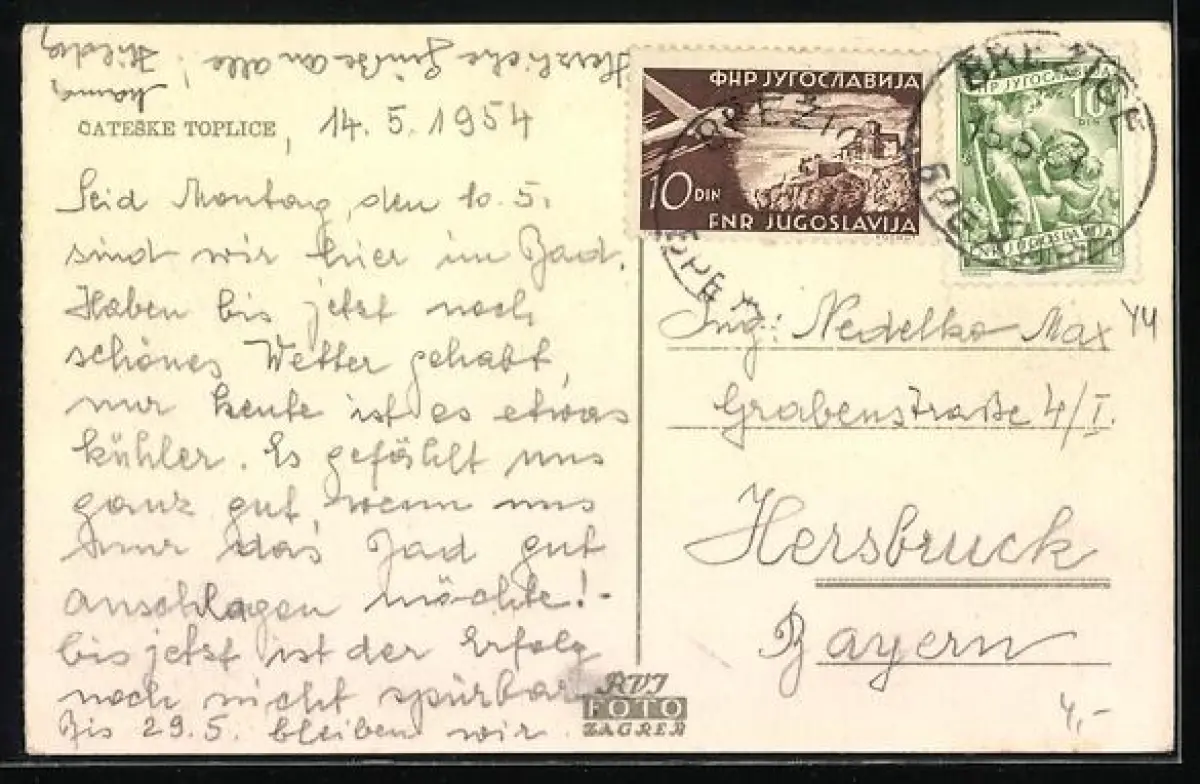 Herzliche Grüße an alle!
Mama, Hilde
ČATEŠKE TOPLICE, 14. 5. 1954
Seid Montag, den 10. 5.
sind wir hier im Bad.
Haben bis jetzt noch
schönes Wetter gehabt,
nur heute ist es etwas
kühler. Es gefählt uns
ganz gut, wenn uns
nur das Bad gut
anschlagen möchte! -
bis jetzt ist der Erfolg
noch nicht spürbar
Bis 29.5. bleiben wir.
ФНР ЈУГОСЛАВИЈА
10 DIN
FNR JUGOSLAVIJA
ФНР ЈУГОСЛАВИЈА
10
DIN
FNR JUGOSLAVIJA
BREŽICE
Ing: Nedelko Max
YU
Grabenstraße 4/I.
Hersbruck
Bayern
4,-
RVI
FOTO
ZAGREB